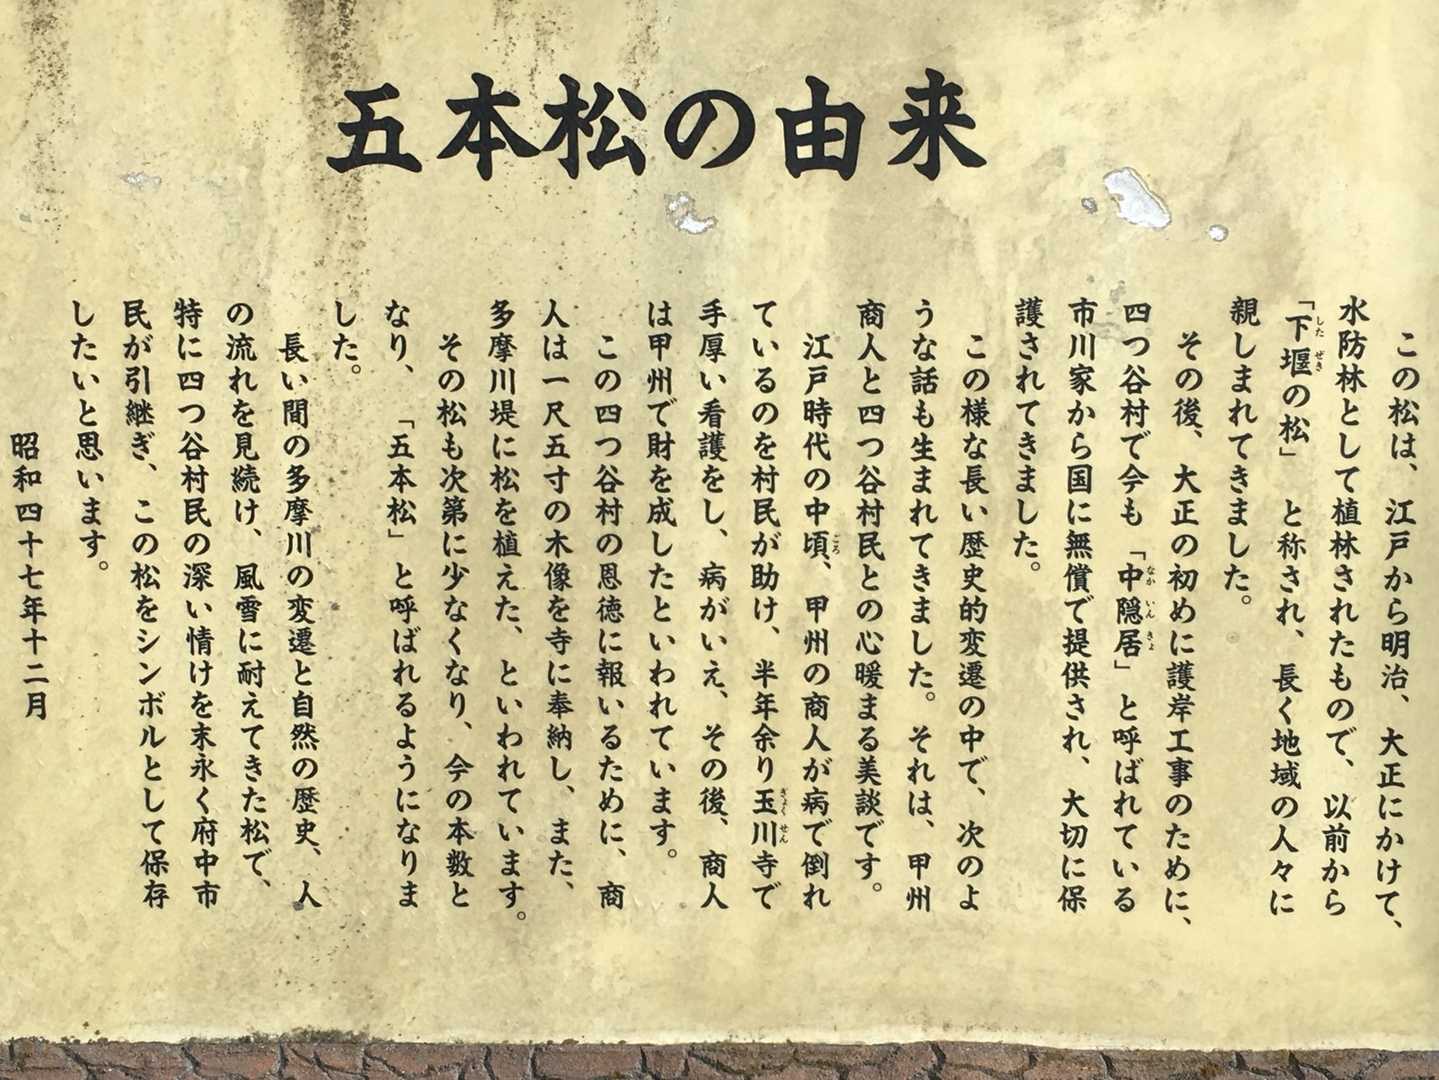 五本松の由来
この松は、江戸から明治、大正にかけて、
水防林として植林されたもので、以前から
「下堰の松」と称され、長く地域の人々に
親しまれてきました。
その後、大正の初めに護岸工事のために、
四つ谷村で今も「中隠居」と呼ばれている
市川家から国に無償で提供され、大切に保
護されてきました。
この様な長い歴史的変遷の中で、次のよ
うな話も生まれてきました。それは、甲州
商人と四つ谷村民との心暖まる美談です。
江戸時代の中頃、甲州の商人が病で倒れ
ているのを村民が助け、半年余り玉川寺で
手厚い看護をし、病がいえ、その後、商人
は甲州で財を成したといわれています。
この四つ谷村の恩徳に報いるために、商
人は一尺五寸の木像を寺に奉納し、また、
多摩川堤に松を植えた、といわれています。
その松も次第に少なくなり、今の本数と
なり、「五本松」と呼ばれるようになりま
した。
長い間の多摩川の変遷と自然の歴史、人
の流れを見続け、風雪に耐えてきた松で、
特に四つ谷村民の深い情けを末永く府中市
民が引継ぎ、この松をシンボルとして保存
したいと思います。
昭和四十七年十二月